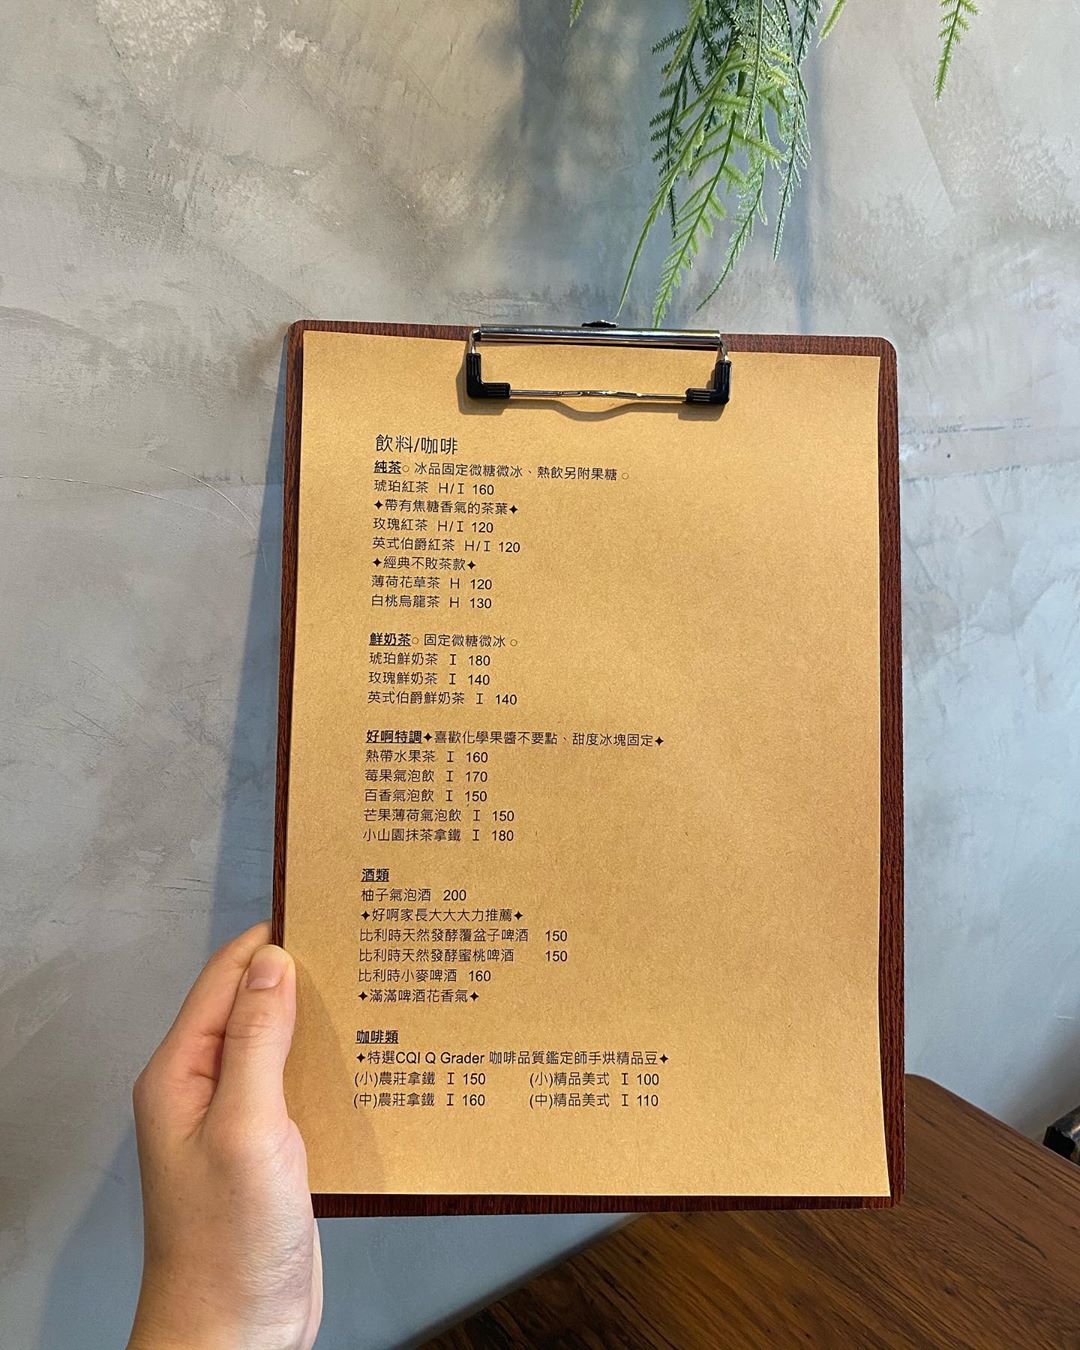 飲料/咖啡
純茶○ 冰品固定微糖微冰、熱飲另附果糖 ○
琥珀紅茶 H/I 160
✦帶有焦糖香氣的茶葉✦
玫瑰紅茶 H/I 120
英式伯爵紅茶 H/I 120
✦經典不敗茶款✦
薄荷花草茶 H 120
白桃烏龍茶 H 130
鮮奶茶○ 固定微糖微冰 ○
琥珀鮮奶茶 I 180
玫瑰鮮奶茶 I 140
英式伯爵鮮奶茶 I 140
好啊特調✦喜歡化學果醬不要點、甜度冰塊固定✦
熱帶水果茶 I 160
莓果氣泡飲 I 170
百香氣泡飲 I 150
芒果薄荷氣泡飲 I 150
小山園抹茶拿鐵 I 180
酒類
柚子氣泡酒 200
✦好啊家長大大大力推薦✦
比利時天然發酵覆盆子啤酒 150
比利時天然發酵蜜桃啤酒 150
比利時小麥啤酒 160
✦滿滿啤酒花香氣✦
咖啡類
✦特選CQI Q Grader 咖啡品質鑑定師手烘精品豆✦
(小)農莊拿鐵 I 150 (小)精品美式 I 100
(中)農莊拿鐵 I 160 (中)精品美式 I 110